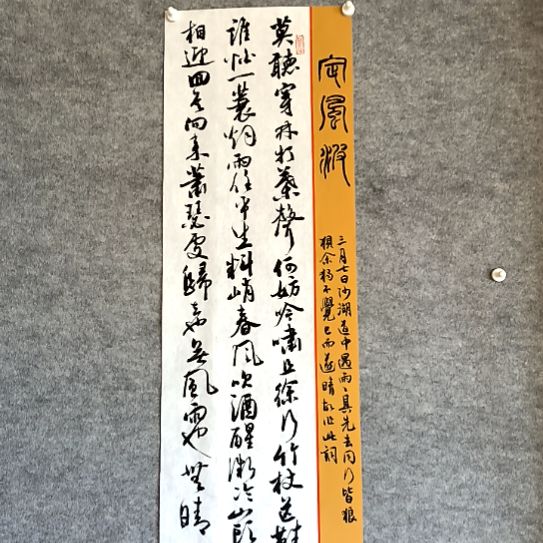 定風波
三月七日沙湖道中遇雨〻具先去同行皆狼
狽余獨不覺已而遂晴故作此詞
莫聽穿林打葉聲何妨吟嘯且徐行竹杖芒鞋
誰怕一蓑烟雨任平生料峭春風吹酒醒微冷山頭
相迎回首向来蕭瑟處歸去也無風雨也無晴